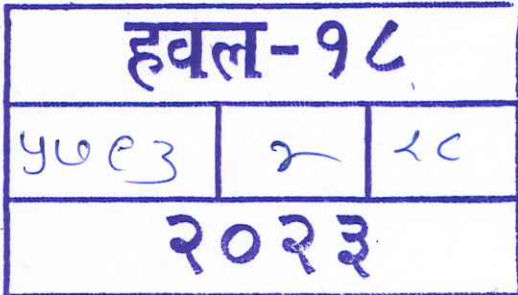 हवल-१८
५७९३ २ २८
२०२३